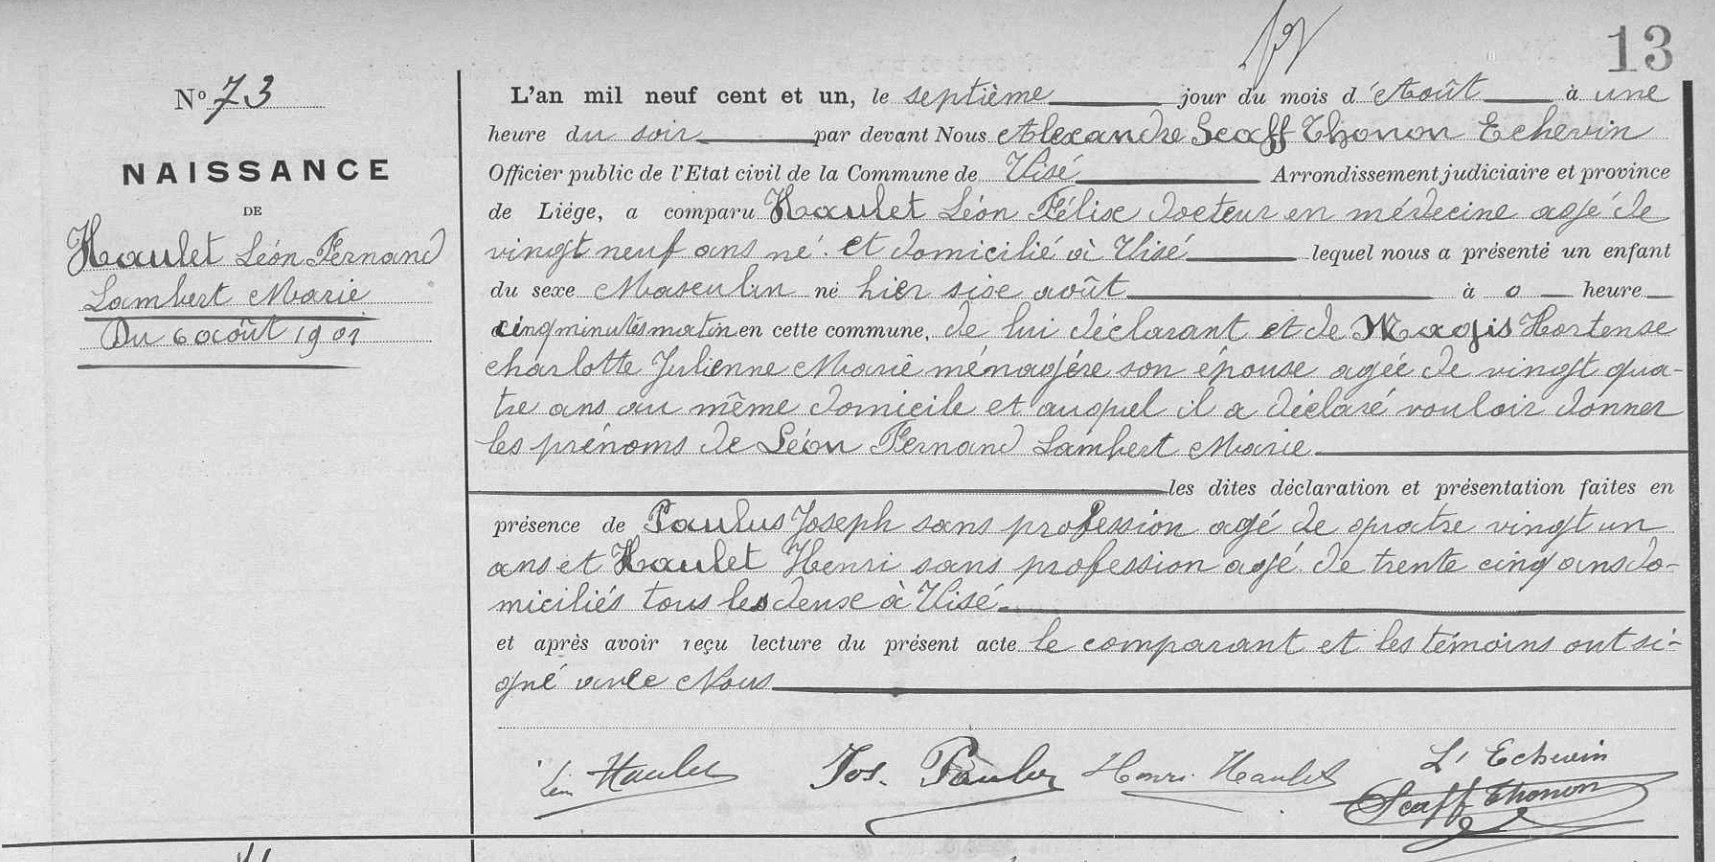 13
N° 73
NAISSANCE
DE
Haulet Léon Fernand
Lambert Marie
Du 6 août 1901
L'an mil neuf cent et un, le septième jour du mois d'Août à une
heure du soir par devant Nous Alexandre Scaff Thonon Echevin
Officier public de l'Etat civil de la Commune de Visé Arrondissement judiciaire et province
de Liége, a comparu Haulet Léon Félix docteur en médecine agé de
vingt neuf ans né et domicilié à Visé lequel nous a présenté un enfant
du sexe Masculin né hier six août à 0 heure
cinq minutes matin en cette commune, de lui déclarant et de Magis Hortense
charlotte Julienne Marie ménagère son épouse agée de vingt qua-
tre ans au même domicile et auquel il a déclaré vouloir donner
les prénoms de Léon Fernand Lambert Marie
les dites déclaration et présentation faites en
présence de Paulus Joseph sans profession agé de quatre vingt un
ans et Haulet Henri sans profession agé de trente cinq ans do-
miciliés tous les deux à Visé
et après avoir reçu lecture du présent acte le comparant et les témoins ont si-
gné avec Nous
Léon Haulet Jos. Paulus Henri Haulet L'Echevin
Scaff Thonon